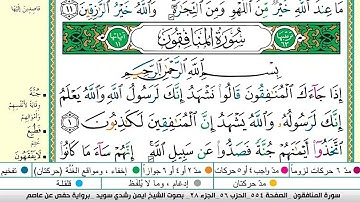 مَا عِندَ ٱللَّهِ خَيْرٌ مِّنَ ٱللَّهْوِ وَمِنَ ٱلتِّجَٰرَةِ ۚ وَٱللَّهُ خَيْرُ ٱلرَّٰزِقِينَ ١١
سُورَةُ المُنَافِقُونَ
بِسْمِ ٱللَّهِ ٱلرَّحْمَٰنِ ٱلرَّحِيمِ
إِذَا جَآءَكَ ٱلْمُنَٰفِقُونَ قَالُوا۟ نَشْهَدُ إِنَّكَ لَرَسُولُ ٱللَّهِ ۗ وَٱللَّهُ يَعْلَمُ
إِنَّكَ لَرَسُولُهُۥ وَٱللَّهُ يَشْهَدُ إِنَّ ٱلْمُنَٰفِقِينَ لَكَٰذِبُونَ ١
ٱتَّخَذُوٓا۟ أَيْمَٰنَهُمْ جُنَّةً فَصَدُّوا۟ عَن سَبِيلِ ٱللَّهِ ۚ إِنَّهُمْ سَآءَ مَا كَانُوا۟
جُنَّةً
فَطُبِعَ
لَا يَفْقَهُونَ
مدّ ٦ حركات لزوماً
مدّ ٢ أو ٤ أو ٦ جوازاً
مدّ واجب ٤ أو ٥ حركات
مدّ حركتان
إخفاء، ومواقع الغُنَّة (حركتان)
إدغام، وما لا يُلفَظ
تفخيم
قلقلة
سورة المنافقون - الصفحة ٥٥٤ الحزب ٥٦ الجزء ٢٨ - بصوت الشيخ ايمن رشدي سويد - برواية حفص عن عاصم